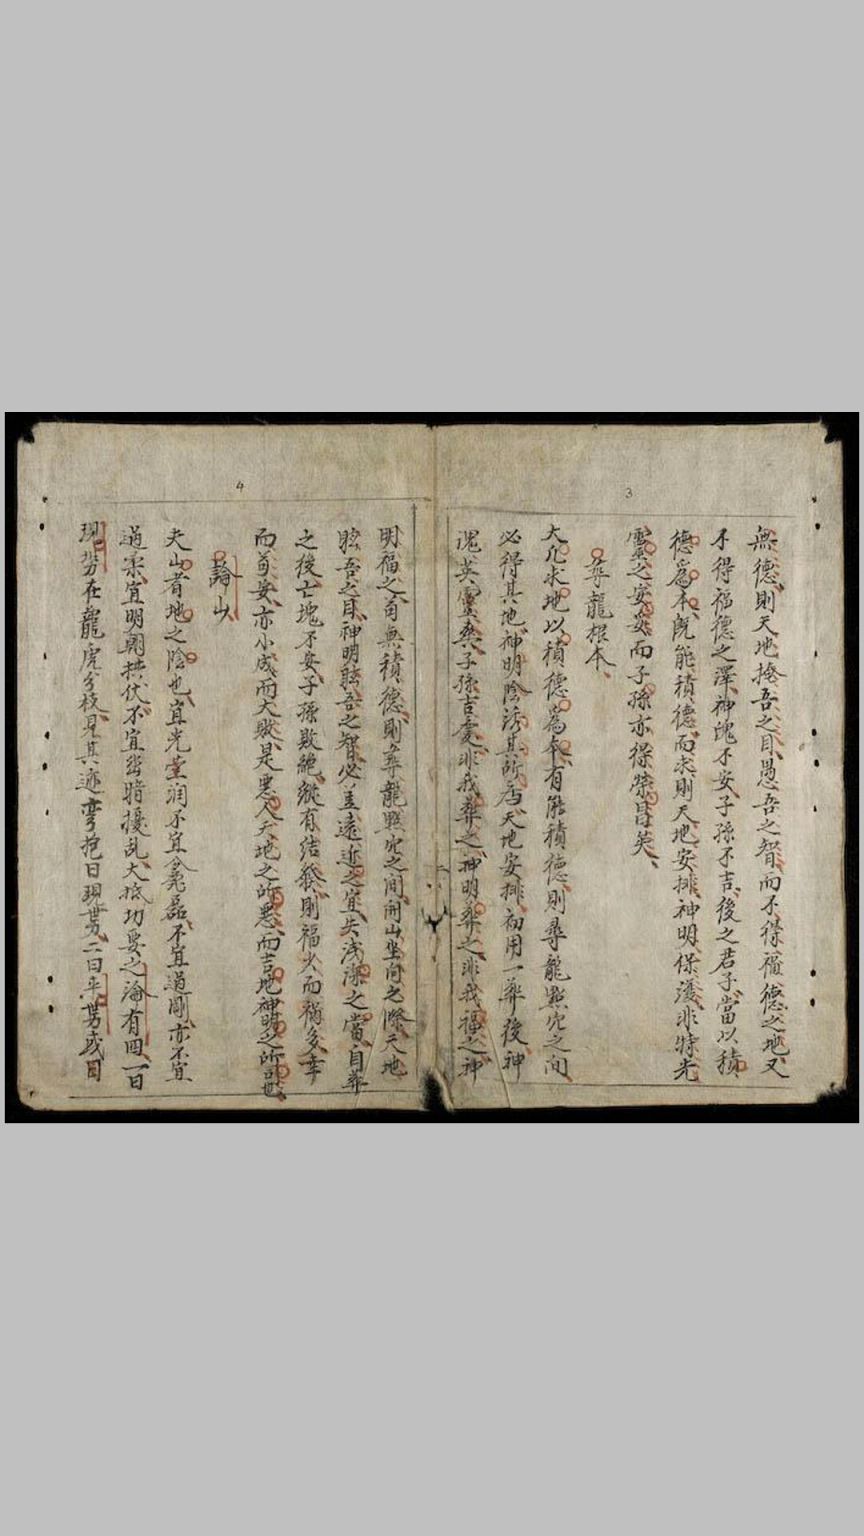 3
無德則天地掩吾之目愚吾之智而不得福德之地又
不得福德之澤神魄不安子孫不吉後之君子當以積
德爲本既能積德而求則天地安排神明保護非特先
靈之安妥而子孫亦得榮昌矣
尋龍根本
大凡求地以積德為本有能積德則尋龍點穴之间
必得其地神明陰誘其所為天地安排初用一葬後神
魂英靈與子孫吉慶非我葬之神明葬之非我福之神
4
明福之苟無積德則尋龍點穴之间開山坐向之際天地
眩吾之目神明眩吾之智必主遠近之宜失浅深之當自葬
之後亡塊不安子孫敗絶縱有结發則福少而禍多幸
而苟安亦小成而大敗是惡人天地之所惡而吉地神明之所
論山
夫山者地之陰也宜光莹润不宜磊不宜過剛亦不宜
過柔宜明朝拱伏不宜幽暗擾乱大抵功要之論有四一曰
現势在龍虎分枝見其迹彎抱曰現势二曰平势或曰